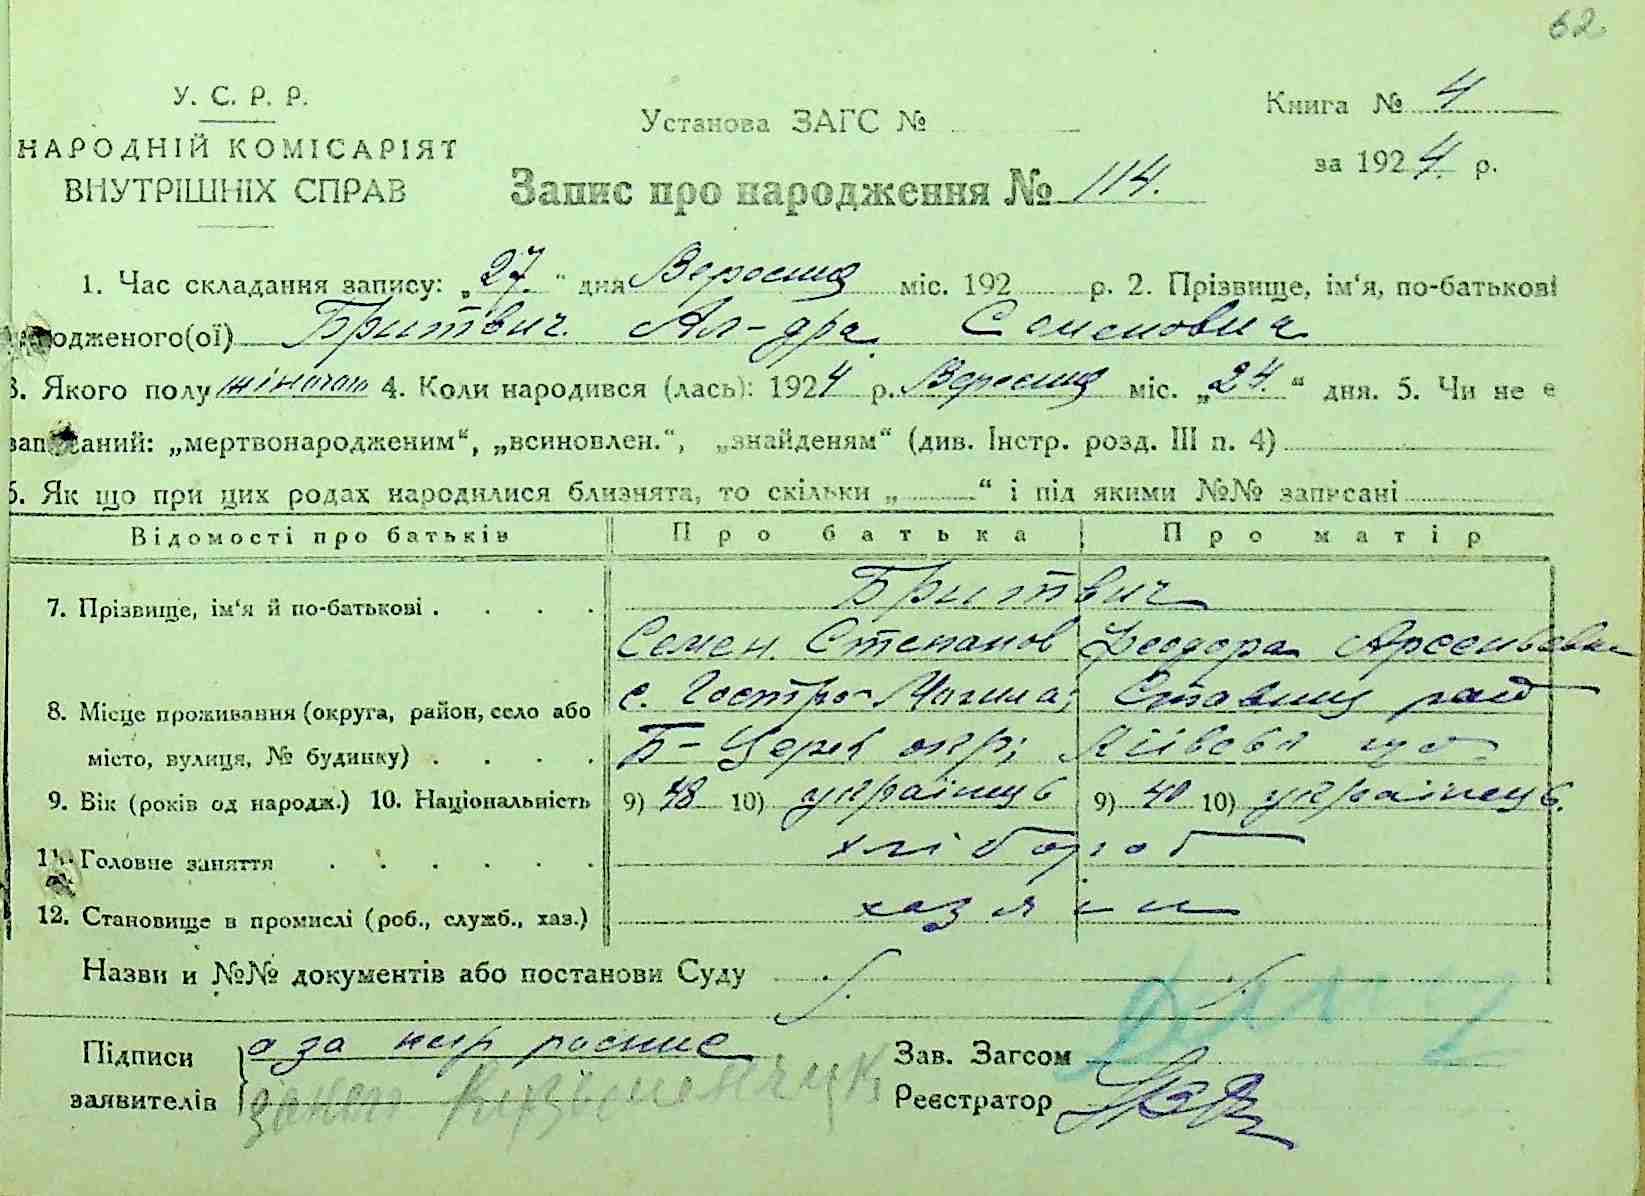 62
У. С. Р. Р.
НАРОДНІЙ КОМІСАРІЯТ
ВНУТРІШНІХ СПРАВ
Установа ЗАГС №
Книга № 4
за 1924 р.
Запис про народження № 114.
1. Час складання запису: „27.“ дня Вересня міс. 192 р. 2. Прізвище, ім'я, по-батькові
родженого(ої) Бритвич. Ал-дра Семеновна
3. Якого полу жіночого 4. Коли народився (лась): 1924 р. Вересня міс. „24.“ дня. 5. Чи не є
записаний: „мертвонародженим“, „всиновлен.“, „знайденям“ (див. Інстр. розд. III п. 4)
6. Як що при цих родах народилися близнята, то скільки „ “ і під якими №№ записані
Відомості про батьків Про батька Про матір
7. Прізвище, ім'я й по-батькові . . . . Бритвич
Семен Степанов Феодора Арсеньевна
8. Місце проживання (округа, район, село або с. Гостро-Могила; Ставищ рай
місто, вулиця, № будинку) . . . . Б-Церк окр; Київськ губ
9. Вік (років од народж.) 10. Національність 9) 48 10) українців 9) 40 10) українців.
11. Головне заняття . . . . . . хлібороб
12. Становище в промислі (роб., служб., хаз.) хазяїн
Назви и №№ документів або постанови Суду
Підписи а за
заявителів
Зав. Загсом
Реєстратор